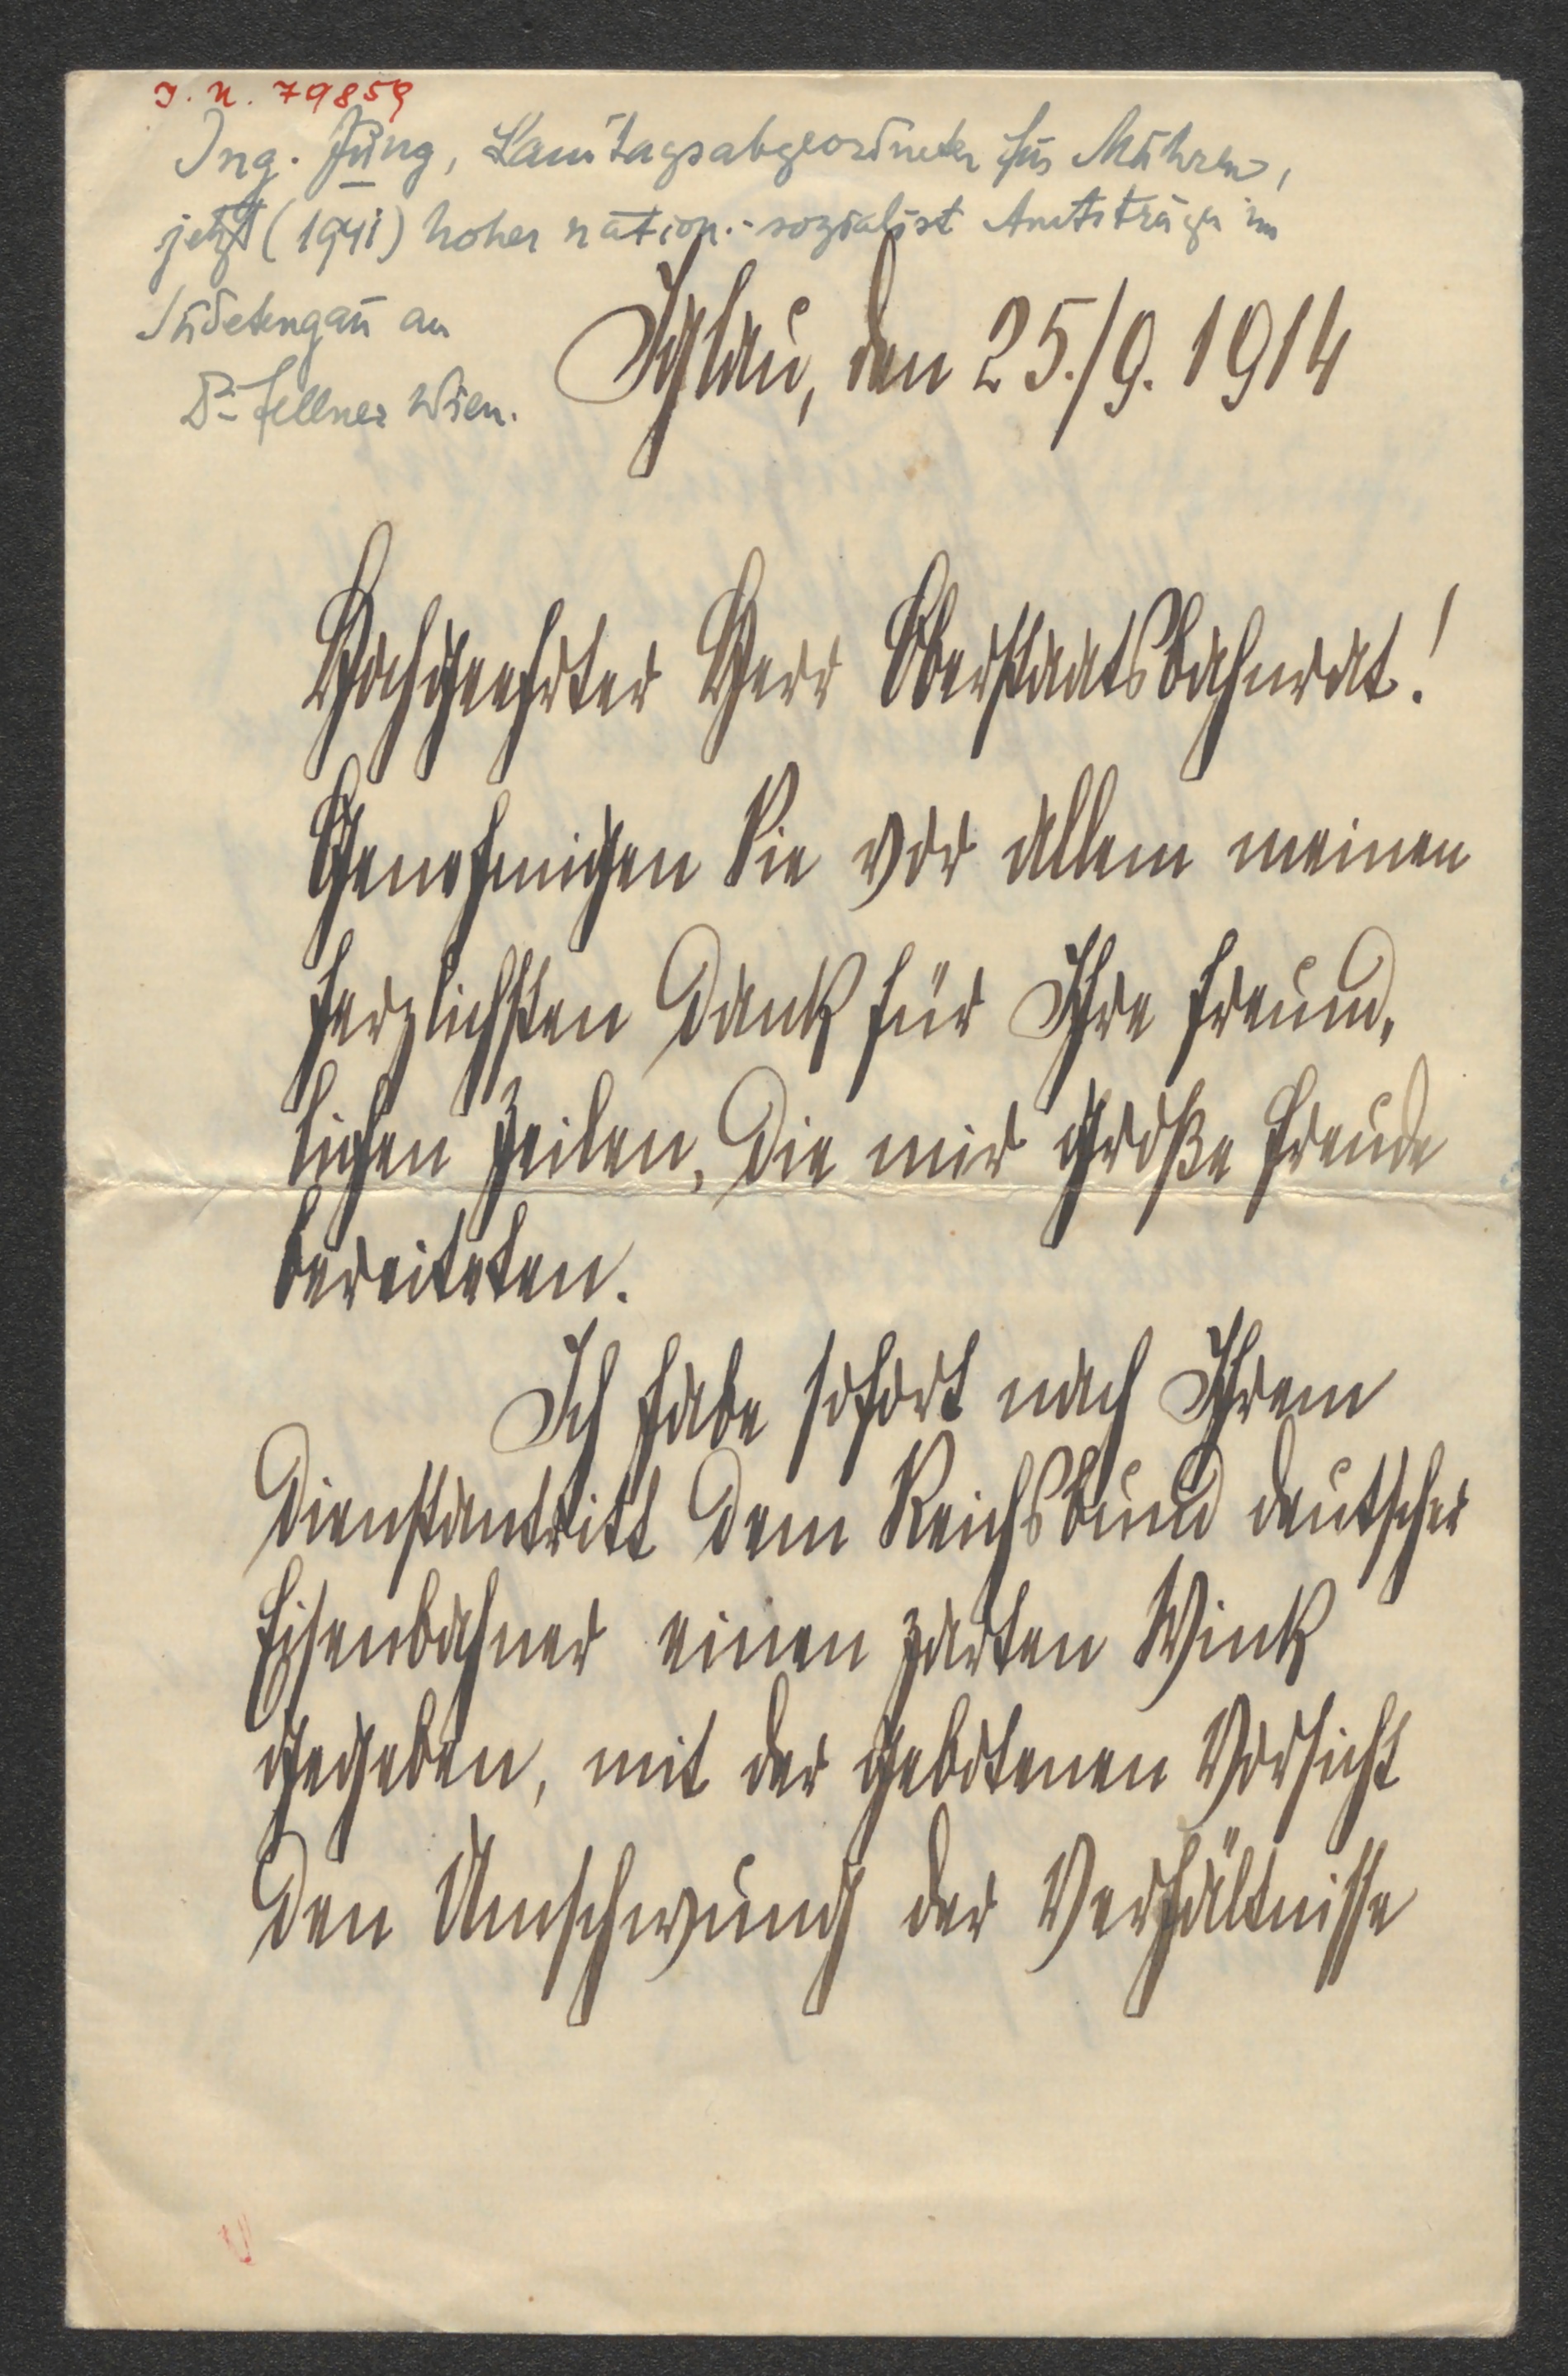 J. N. 79859
Ing. Jung, Landtagsabgeordneter für Mähren,
jetzt (1941) hoher nation.-sozialist Amtsträger im
Sudetengau an
Dr. Fellner Wien.
Iglau, den 25./9. 1914
Hochgeehrter Herr Oberstaatsbahnrat!
Genehmigen Sie vor allem meinen
herzlichsten Dank für Ihre freund-
lichen Zeilen, die mir große Freude
bereiteten.
Ich habe sofort nach Ihrem
Dienstantritt dem Reichsbund deutscher
Eisenbahner einen zarten Wink
gegeben, mit der gebotenen Vorsicht
den Umschwung der Verhältnisse